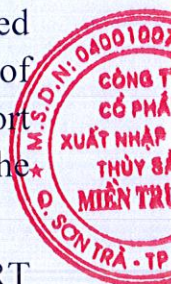 ed
of
ort
he
RT
M.S.D.N: 0400100
CÔNG T
CỔ PHẦ
XUẤT NHẬP
THỦY SẢ
MIỀN TRU
Q. SƠN TRÀ - TP